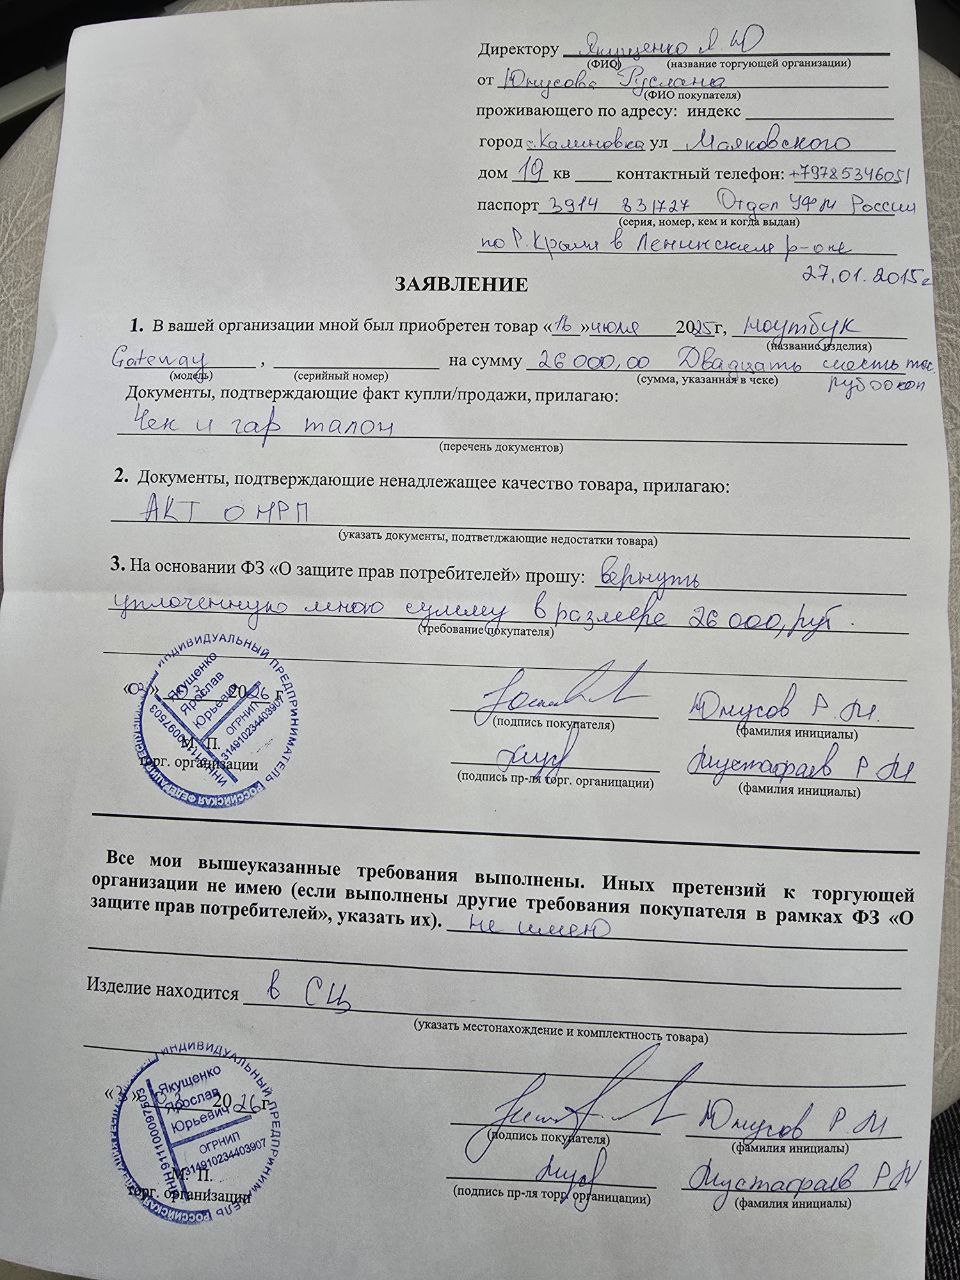 Директору Якущенко Я. Ю
(ФИО) (название торгующей организации)
от Юнусова Руслана
(ФИО покупателя)
проживающего по адресу: индекс
город с. Калиновка ул Маяковского
дом 19 кв контактный телефон: +79785346051
паспорт 3914 831727 Отдел УФМ России
(серия, номер, кем и когда выдан)
по Р. Крым в Ленинским р-оне
27.01.2015г
ЗАЯВЛЕНИЕ
1. В вашей организации мной был приобретен товар «16 »июля 2025г, ноутбук
(название изделия)
Gateway , на сумму 26 000,00 Двадцать шесть тыс.
(модель) (серийный номер) (сумма, указанная в чеке) руб 00 коп
Документы, подтверждающие факт купли/продажи, прилагаю:
Чек и гар талон
(перечень документов)
2. Документы, подтверждающие ненадлежащее качество товара, прилагаю:
АКТ о НРП
(указать документы, подтветджающие недостатки товара)
3. На основании ФЗ «О защите прав потребителей» прошу: вернуть
уплоченную мною сумму в размере 26 000, руб.
(требование покупателя)
«03» 03 2026 г
(подпись покупателя) Юнусов Р. М.
(фамилия инициалы)
М. П.
торг. организации
(подпись пр-ля торг. органицации) Мустафаев Р М
(фамилия инициалы)
ИНДИВИДУАЛЬНЫЙ ПРЕДПРИНИМАТЕЛЬ
РОССИЙСКАЯ ФЕДЕРАЦИЯ
Якущенко
Ярослав
Юрьевич
ОГРНИП
314910234403907
ИНН 911000097503
Все мои вышеуказанные требования выполнены. Иных претензий к торгующей
организации не имею (если выполнены другие требования покупателя в рамках ФЗ «О
защите прав потребителей», указать их). не имею
Изделие находится в СЦ
(указать местонахождение и комплектность товара)
«3» 03 2026г
(подпись покупателя) Юнусов Р. М
(фамилия инициалы)
М. П.
торг. организации
(подпись пр-ля торг. органицации) Мустафаев Р М
(фамилия инициалы)
ИНДИВИДУАЛЬНЫЙ ПРЕДПРИНИМАТЕЛЬ
Якущенко
Ярослав
Юрьевич
ОГРНИП
314910234403907